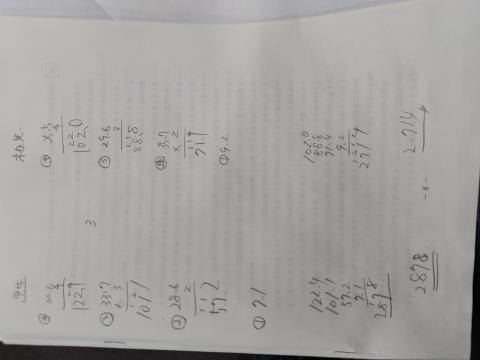 ④
4
122.4
③ 33.7
× 3
101.1
② 28.6
2
57.2
① 7.1
122.4
101.1
57.2
7.1
287.8
2.878
3
④
4
102.0
③ 29.6
3
88.8
② 35.7
× 2
71.4
① 9.2
102.0
88.8
71.4
9.2
271.4
2.714
- 8 -